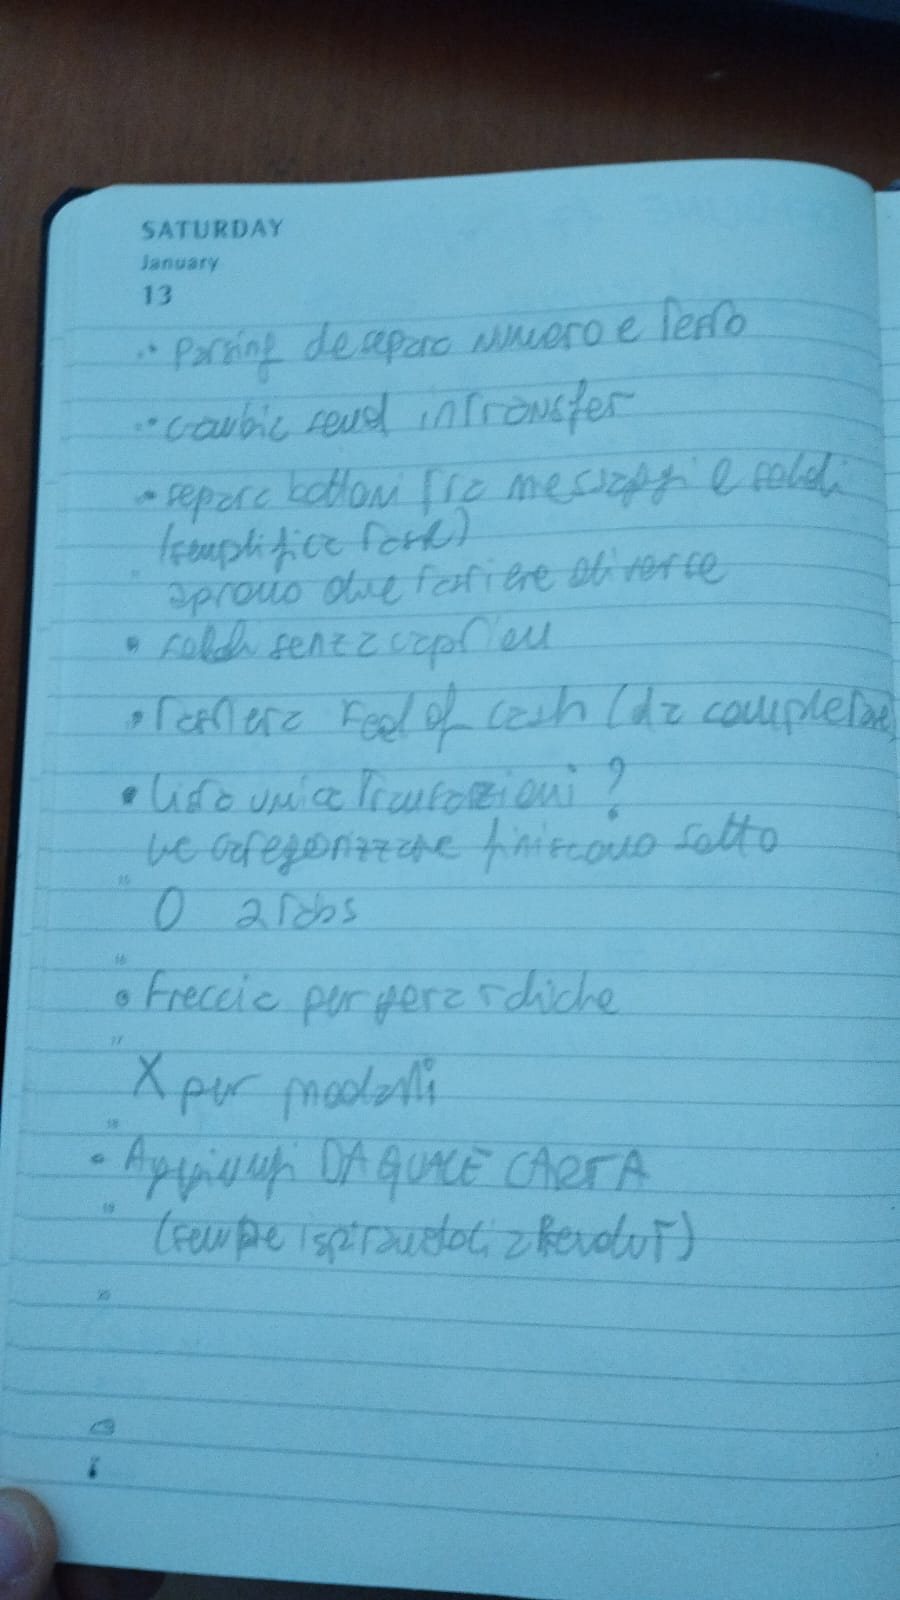 SATURDAY
January
13
• Parsing che separa numero e testo
• cambia send in transfer
• separa bottoni fra messaggi e soldi
(semplifica task)
aprono due tastiere diverse
• soldi senza capirli
• Tastiera Feel of cash (da completare)
• lista unica Transazioni ?
le categorizzate finiscono sotto
O 2 tabs
• Freccia per gerarchiche
X per modali
• Aggiungi DA QUALE CARTA
(sempre ispirandoti a Revolut)